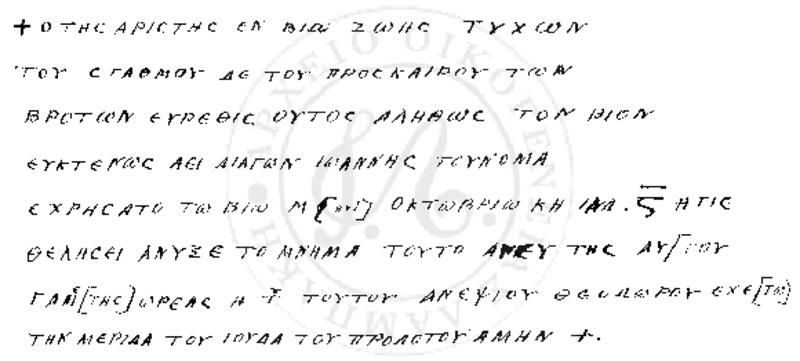 + Ο ΤΗC ΑΡΙCΤΗC ΕΝ ΒΙΩ ΖΩΗC ΤΥΧΩΝ
ΤΟΥ CΓΑΘΜΟΥ ΔΕ ΤΟΥ ΠΡΟCΚΑΙΡΟΥ ΤΩΝ
ΒΡΟΤΩΝ ΕΥΡΕΘΙC ΟΥΤΟC ΑΛΗΘΩC ΤΟΝ ΒΙΟΝ
ΕΥΚΤΕΝΩC ΑΕΙ ΔΙΑΓΩΝ ΙΩΑΝΝΗC ΤΟΥΝΟΜΑ
ΕΧΡΗCΑΤΟ ΤΩ ΒΙΩ ΟΚΤΩΒΡΙΩ ΚΗ ΙΝΔ. Ϛ ΗΤΙC
ΘΕΛΗCΕΙ ΑΝΥΞΕ ΤΟ ΜΝΗΜΑ ΤΟΥΤΟ ΑΝΕΥ ΤΗC ΑΥ[ΤΟΥ
ΓΑΜ[ΤΗC]ΩΡΕΑC Η ΤΟΥΤΟΥ ΑΝΕΨΙΟΥ ΘΕΟΔΩΡΟΥ ΕΧΕ[ΤΩ]
ΤΗΝ ΜΕΡΙΔΑ ΤΟΥ ΙΟΥΔΑ ΤΟΥ ΠΡΟΔΟΤΟΥ ΑΜΗΝ +.
ΑΡΧΕΙΟ ΟΙΚΟΓΕΝΕΙΑΣ ΛΑΜΠΑΚΗ